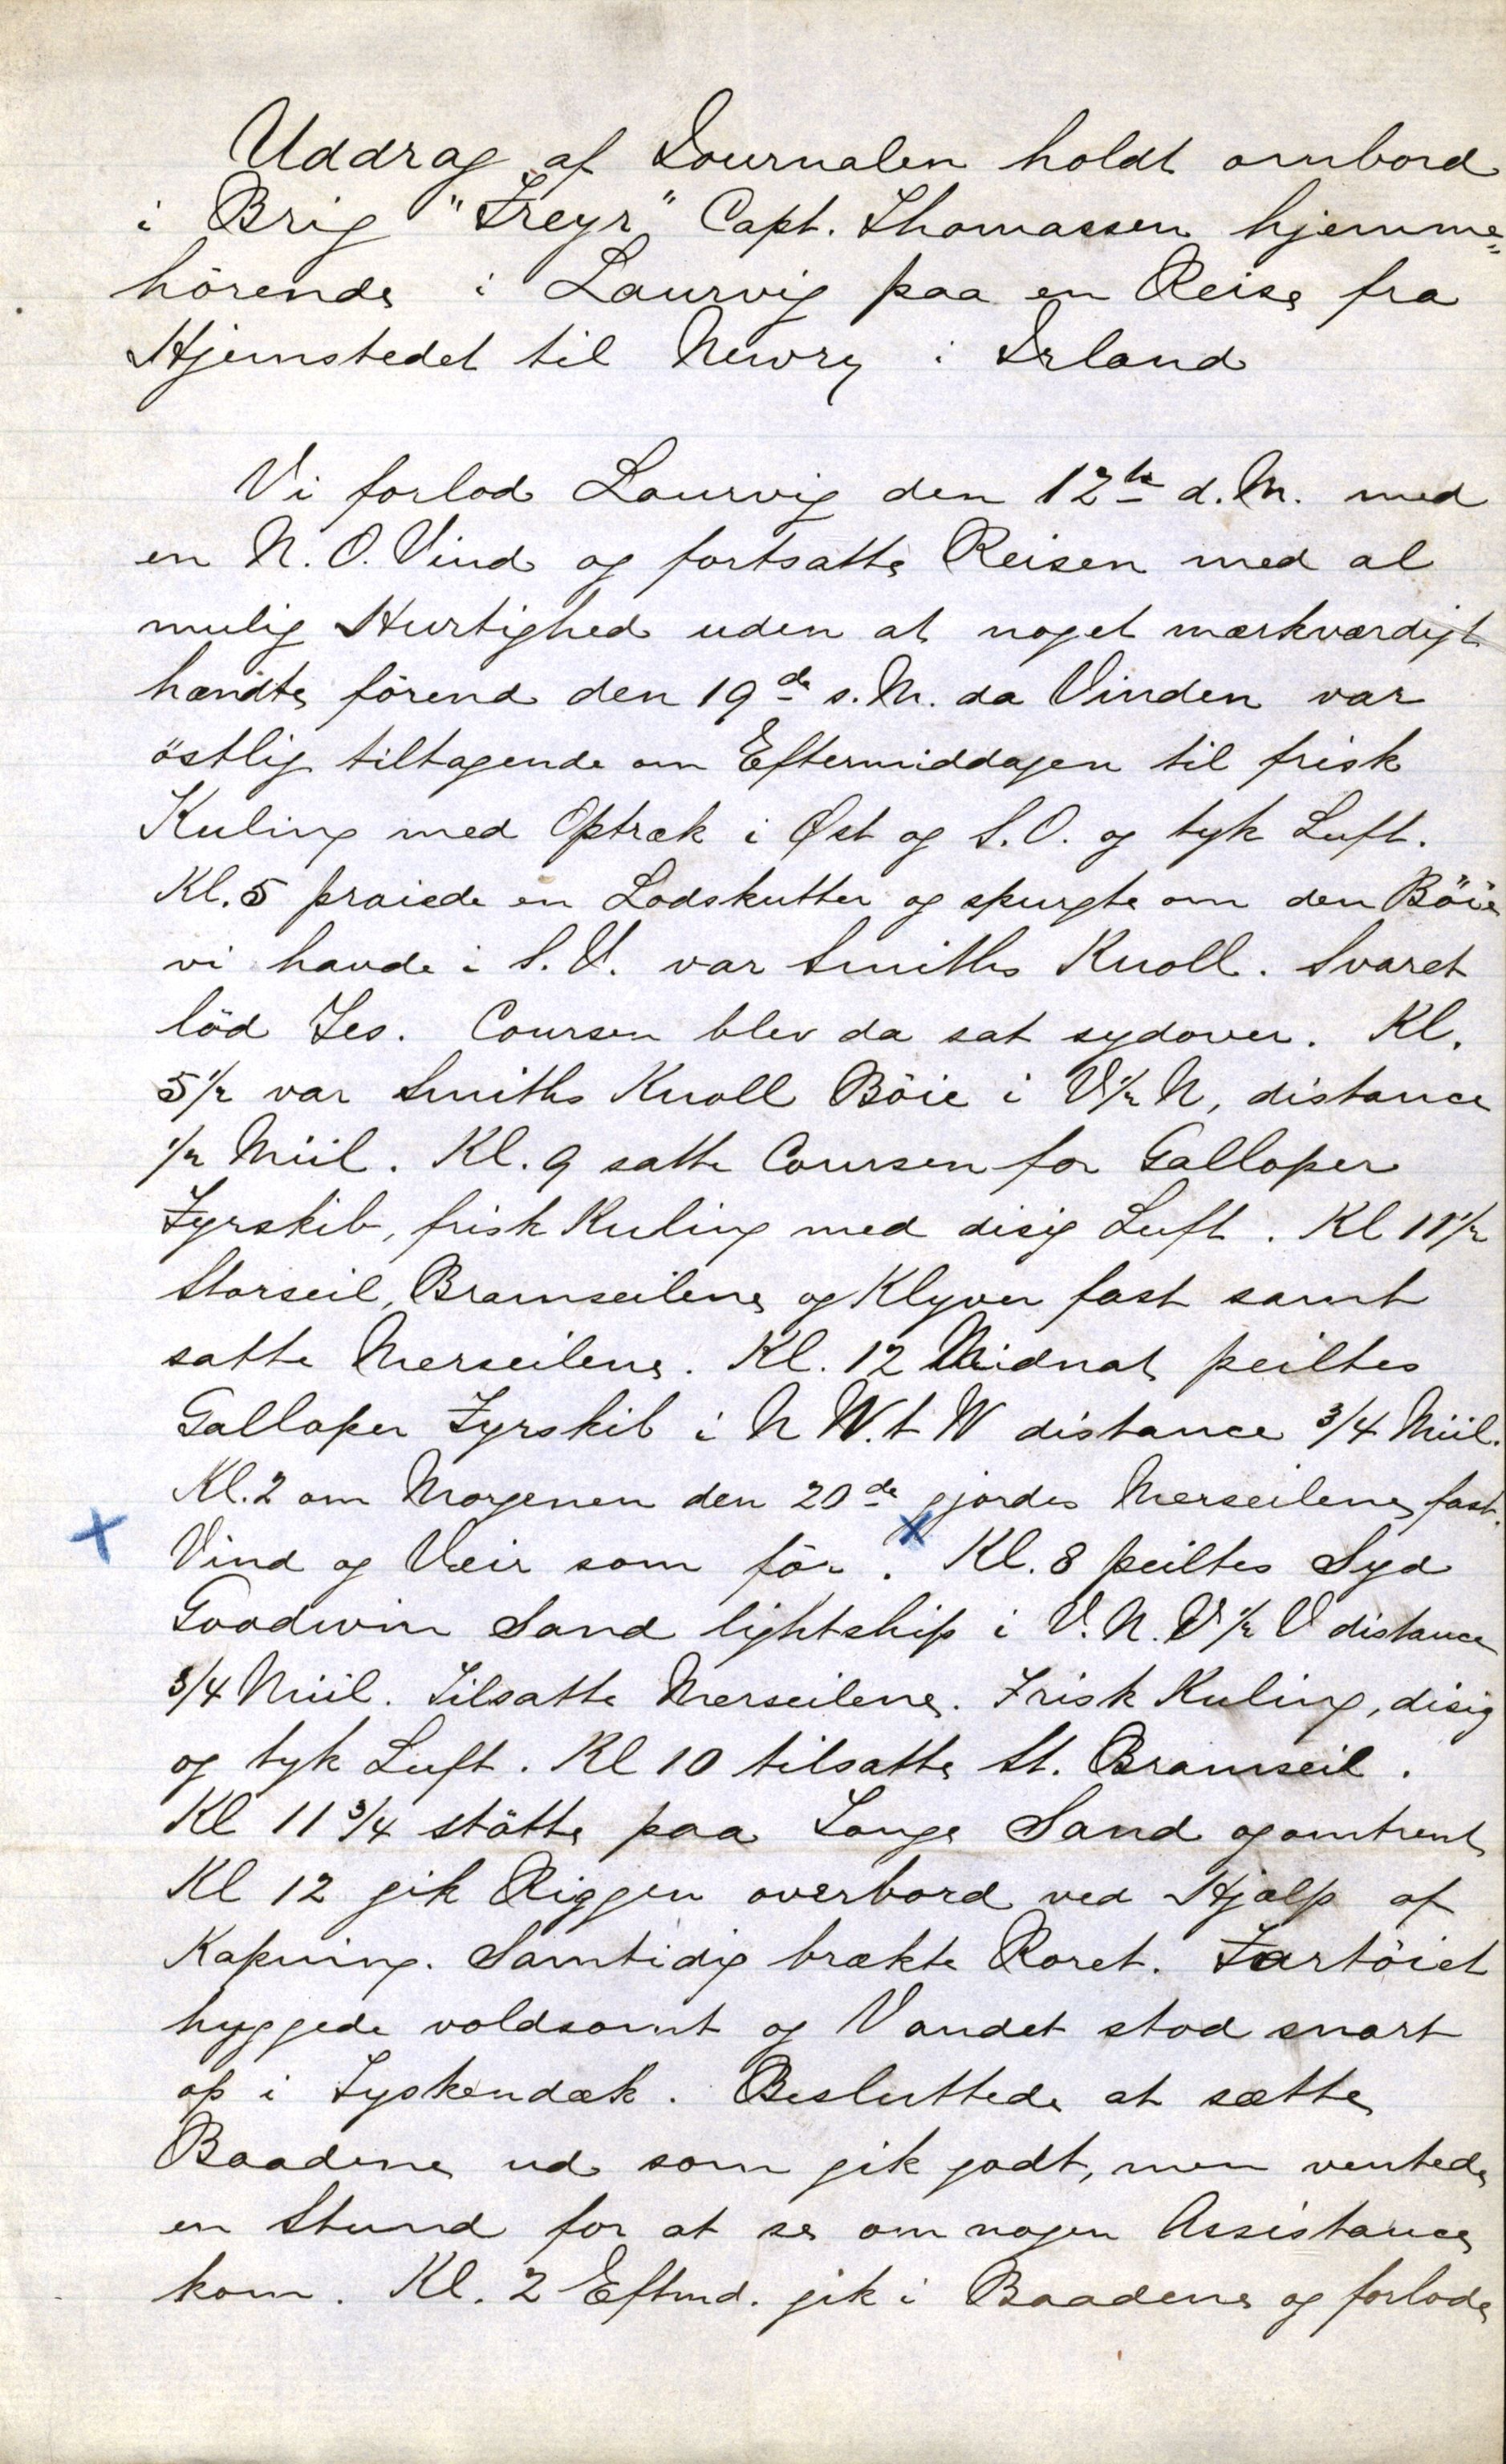 Uddrag af Journalen holdt ombord
i Brig "Freyr" Capt. Thomassen hjemme=
hörende i Laurvig paa en Reise fra
Hjemstedet til Newry i Irland
Vi forlod Laurvig den 12te d. M. med
en N. O. Vind og fortsatte Reisen med al
mulig Hurtighed uden at noget mærkværdigt
hændte förend den 19de s. M. da Vinden var
östlig tiltagende om Eftermiddagen til frisk
Kuling med Optræk i Øst og S. O. og tyk Luft.
Kl. 5 praiede en Lodskutter og spurgte om den Böie
vi havde i S. V. var Smiths Knoll. Svaret
löd Yes. Coursen blev da sat sydover. Kl.
5 1/2 var Smiths Knoll Böie i V 1/2 N, distance
1/2 Miil. Kl. 9 satte Coursen for Galloper
Fyrskib, frisk Kuling med disig Luft. Kl 11 1/2
Storseil, Bramseilene og Klyver fast samt
satte Merseilene. Kl. 12 Midnat peiltes
Galloper Fyrskib i N W. t W distance 3/4 Miil.
Kl. 2 om Morgenen den 20de gjordes Merseilene fast.
Vind og Veir som för. Kl. 8 peiltes Syd
Goodwin Sand lightship i V. N. V 1/2 V distance
3/4 Miil. Tilsatte Merseilene. Frisk Kuling, disig
og tyk Luft. Kl 10 tilsatte St. Bramseil.
Kl 11 3/4 stötte paa Longe Sand og omtrent
Kl 12 gik Riggen overbord ved Hjælp af
Kapning. Samtidig brækte Roret. Fartöiet
huggede voldsomt og Vandet stod snart
op i Tyskendæk. Besluttede at sætte
Baadene ud som gik godt, men ventede
en Stund for at se om nogen Assistance
kom. Kl. 2 Eftmd. gik i Baadene og forlode